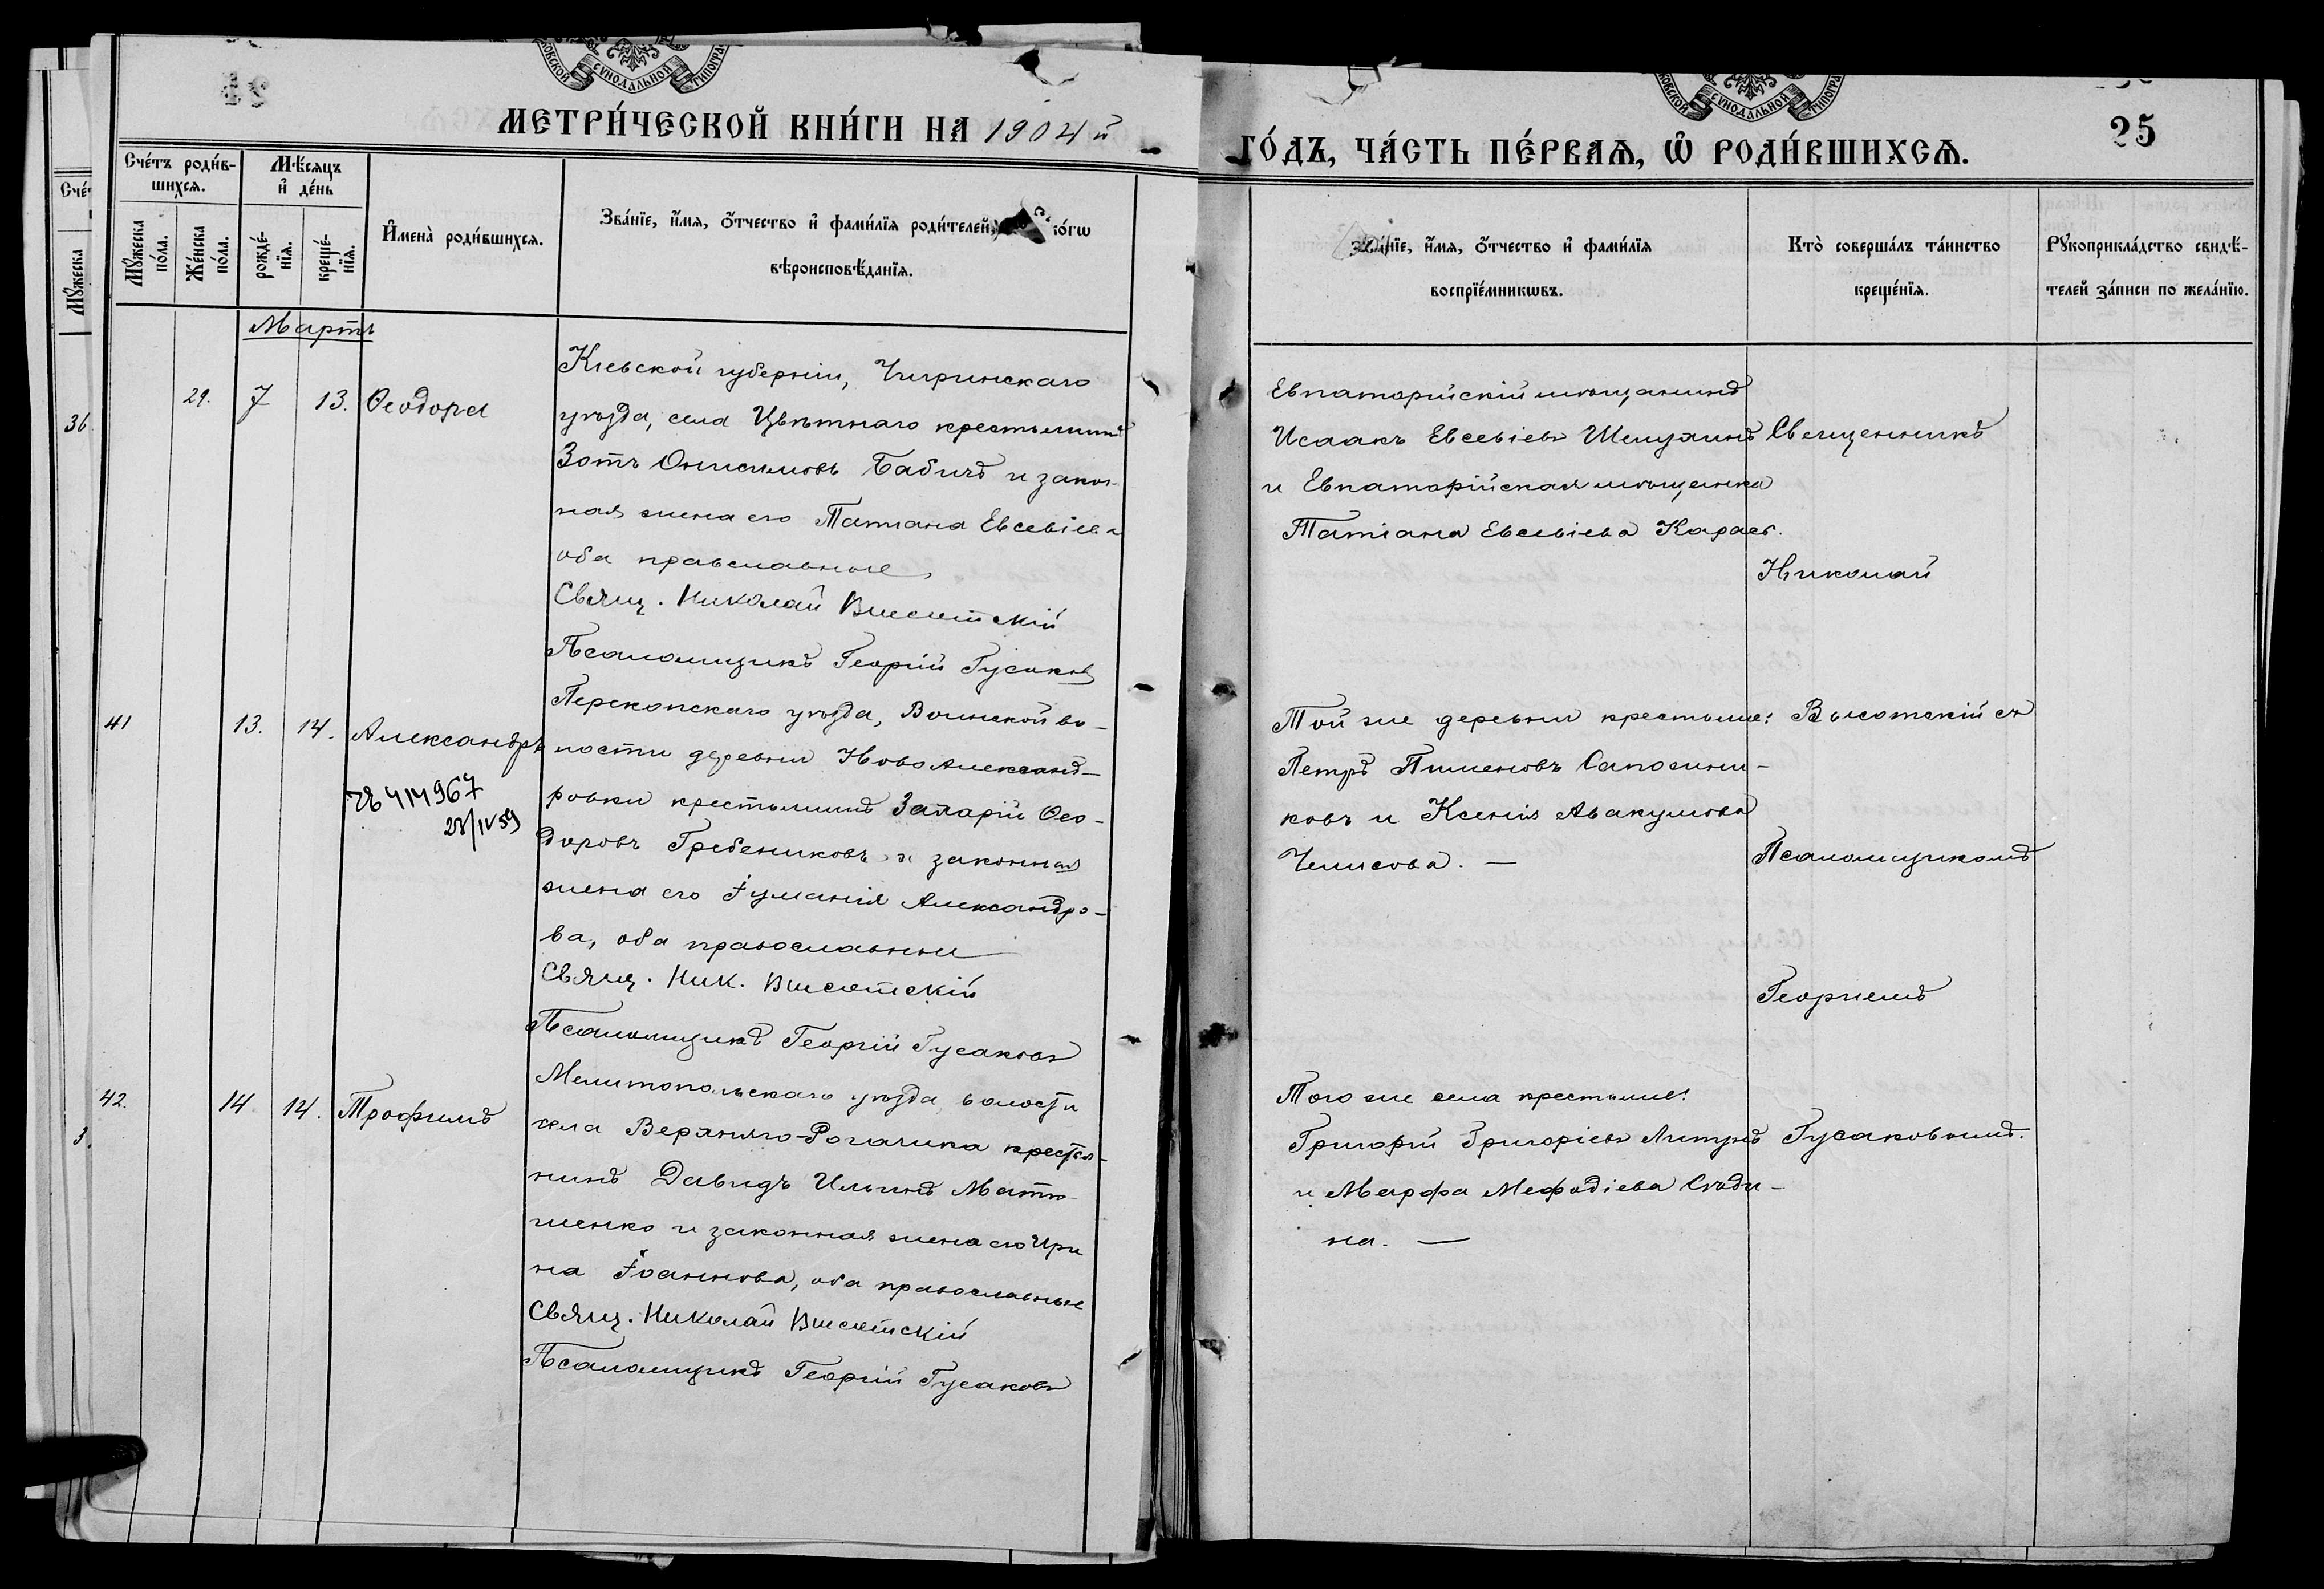 МОСКОВСКОЙ СѴНОДАЛЬНОЙ ТИПОГРА
МЕТРИ́ЧЕСКОЙ КНИ́ГИ НА 1904 й
ГО́ДЪ, ЧА́СТЬ ПЕ́РВАѦ, Ѿ РОДИ́ВШИХСѦ.
25
Сче́тъ роди́в-
шихсѧ.
Мꙋ́жеска по́ла.
Же́нска по́ла.
Мѣ́сѧцъ
и҆ де́нь
рожде́-
нїѧ.
креще́-
нїѧ.
И҆мена̀ роди́вшихсѧ.
Зва́нїе, и҆́мѧ, ѻ҆́тчество и҆ фами́лїѧ роди́телей,
ко́гѡ
вѣроисповѣ́данїѧ.
Зва́нїе, и҆́мѧ, ѻ҆́тчество и҆ фами́лїѧ
воспрїе́мникѡвъ.
Кто̀ соверша́лъ та́инство
креще́нїѧ.
Рꙋкоприкла́дство свидѣ́-
телей за́писи по жела́нїю.
Мартъ
29. 7 13. Ѳеодора
Кіевской губерніи, Чигринскаго
уѣзда, села Цвѣтнаго крестьянинъ
Зотъ Онисимовъ Бабичъ и закон-
ная жена его Татіана Евсевіева
оба православные,
Свящ. Николай Высотскій
Псаломщикъ Георгій Гусаковъ
Евпаторійскій мѣщанинъ
Исаакъ Евсевіевъ Шелухинъ
и Евпаторійская мѣщанка
Татіана Евсевіева Караев.
Священникъ
Николай
41 13. 14. Александръ
414967
28/IV 59
Перекопскаго уѣзда, Воинской во-
лости деревни Ново Александ-
ровки крестьянинъ Захарій Ѳео-
доровъ Гребениковъ и законная
жена его Іуліанія Александро-
ва, оба православны
Свящ. Ник. Высотскій
Псаломщикъ Георгій Гусаковъ
Той же деревни крестьяне:
Петръ Пименовъ Сапожни-
ковъ и Ксенія Авакумова
Чемисова. —
Высотскій съ
Псаломщикомъ
Георгіемъ
42. 14 14. Трофимъ
Мелитопольскаго уѣзда волости
села Верхняго-Рогачика крестья-
нинъ Давидъ Ильинъ Матю
шенко и законная жена его Ири
на Іоаннова, оба православные
Свящ. Николай Высотскій
Псаломщикъ Георгій Гусаковъ
Того же села крестьяне:
Григорій Григоріевъ
и Марфа Мефодіева
на. —
Гусаковымъ.
36